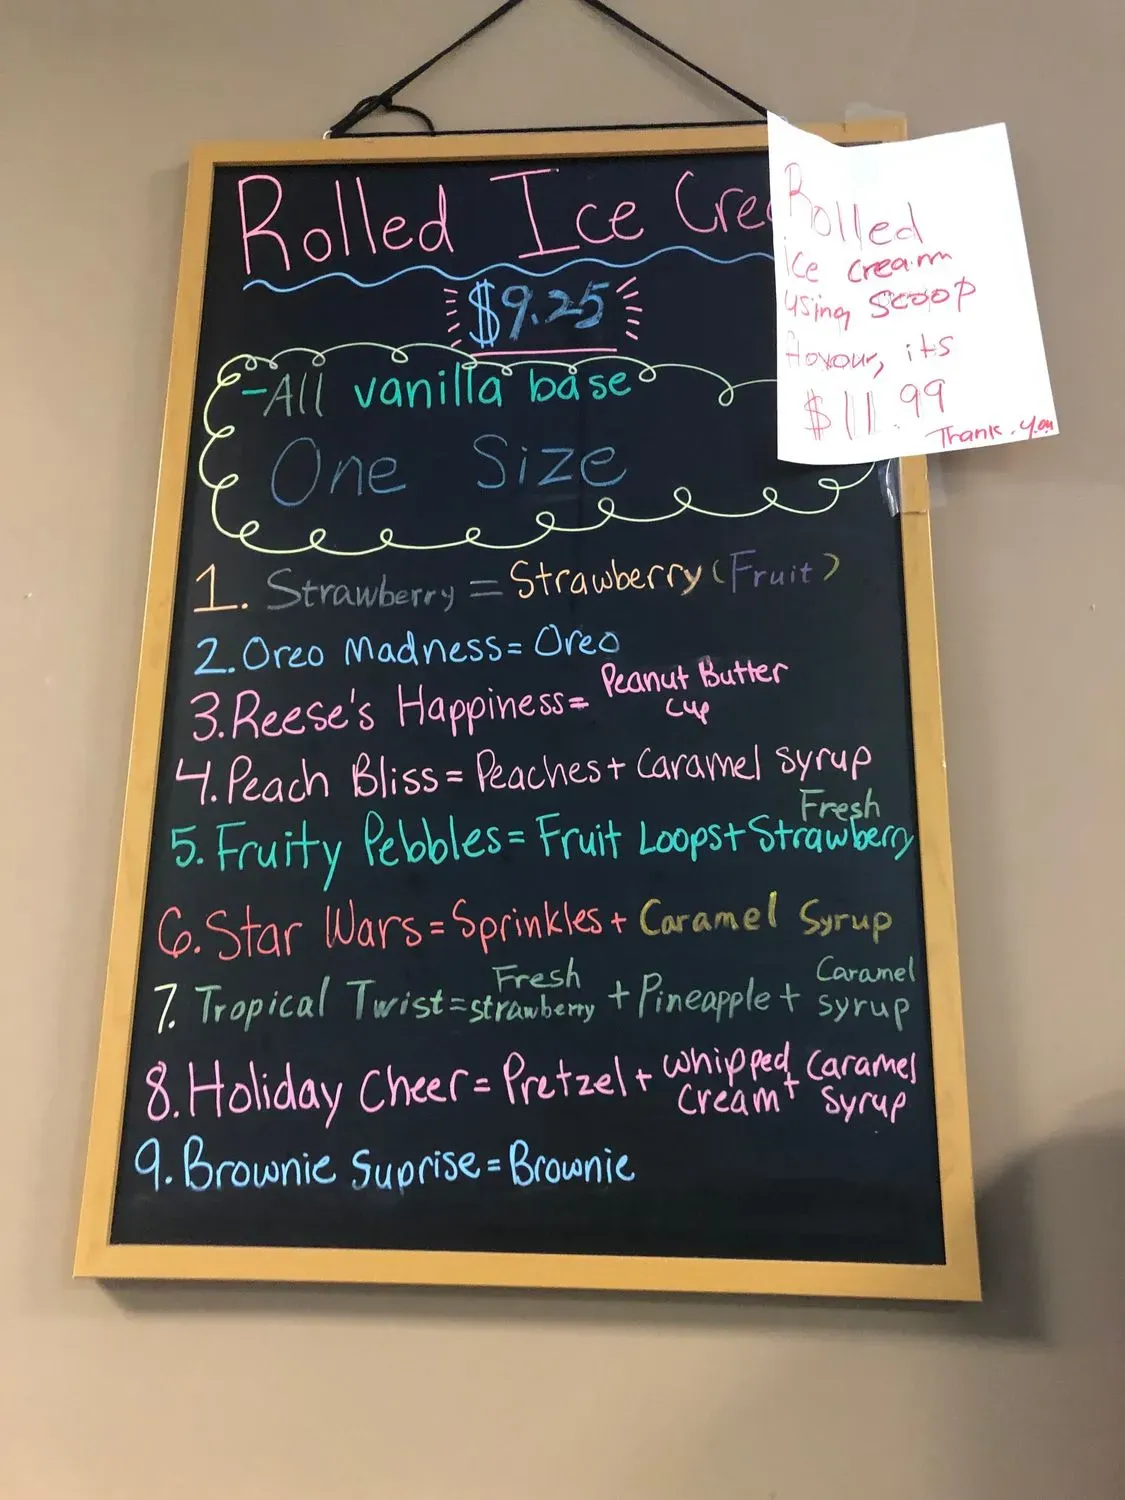 Rolled Ice Crea
$9.25
-All vanilla base
One Size
1. Strawberry = Strawberry (Fruit)
2. Oreo Madness = Oreo
3. Reese's Happiness = Peanut Butter Cup
4. Peach Bliss = Peaches + Caramel Syrup
5. Fruity Pebbles = Fruit Loops + Fresh Strawberry
6. Star Wars = Sprinkles + Caramel Syrup
7. Tropical Twist = Fresh strawberry + Pineapple + Caramel syrup
8. Holiday Cheer = Pretzel + whipped cream + caramel syrup
9. Brownie Suprise = Brownie
Rolled
ice cream
using scoop
flavour, its
$11.99
Thank. You